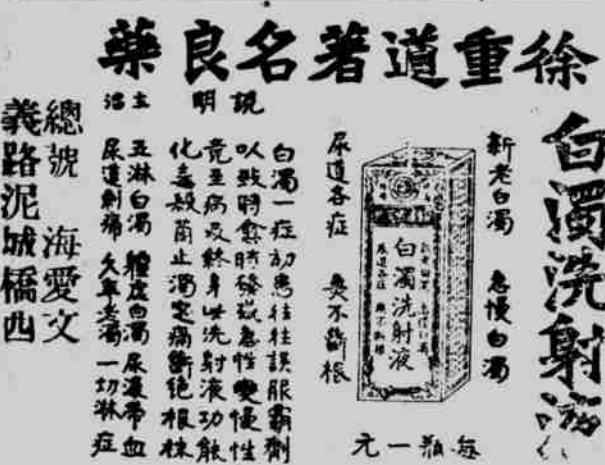 徐重道著名良藥
白濁洗射液
新老白濁 急慢白濁
白濁洗射液
尿道各症 無不斷根
每瓶一元
說明
白濁一症初患往往誤服霸劑
以致時愈時發或急性變慢性
竟至病及終身此洗射液功能
化毒殺菌止濁定痛斷絕根株
主治
五淋白濁 體虛白濁 尿濕帶血
尿道刺痛 久年老濁 一切淋症
總號 海愛文
義路泥城橋西